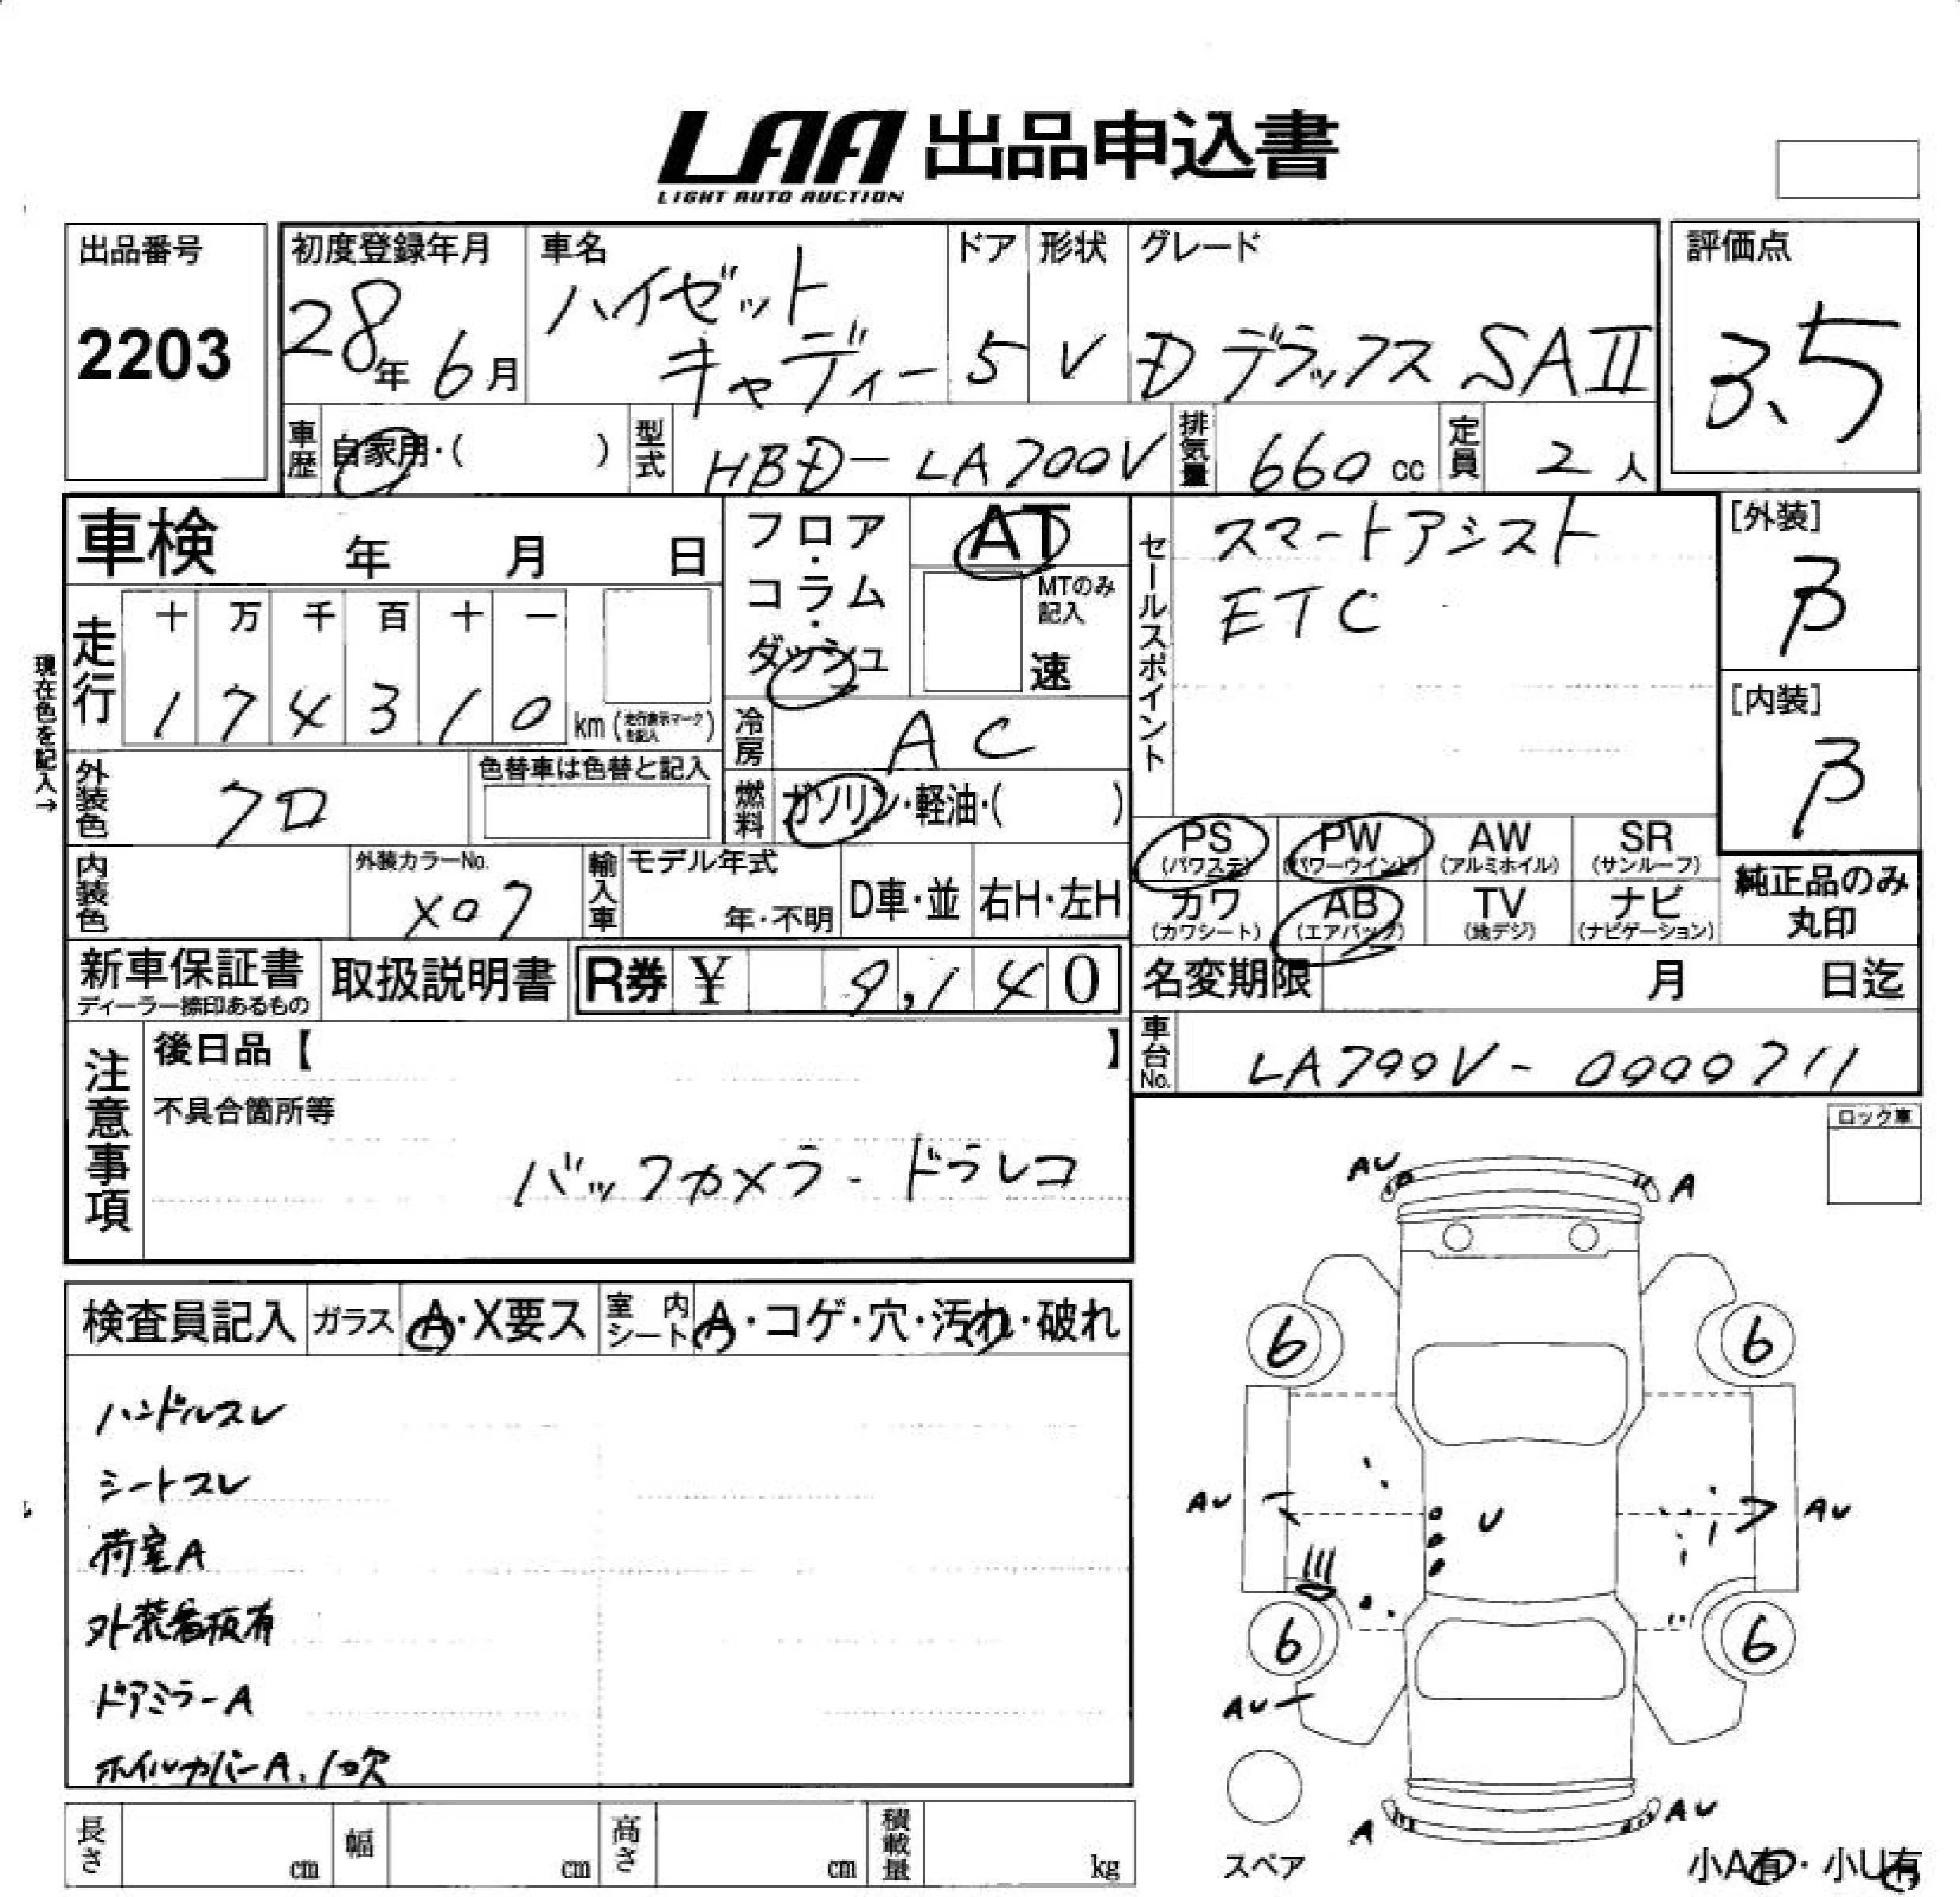 LAA 出品申込書
LIGHT AUTO AUCTION
出品番号
2203
初度登録年月
28年 6月
車名
ハイゼット
キャディー
ドア
5
形状
V
グレード
D デラックス SAII
評価点
3.5
車歴 自家用・( )
型式 HBD-LA700V
排気量 660 cc
定員 2 人
車検 年 月 日
走行
十 万 千 百 十 一
1 7 4 3 1 0 km (走行表示マークを記入)
現在色を記入→
外装色 クロ
色替車は色替と記入
内装色
外装カラーNo.
X07
輸入車
モデル年式
年・不明
D車・並
右H・左H
フロア・コラム・ダッシュ
AT
MTのみ記入
速
冷房 AC
燃料 ガソリン・軽油・( )
セールスポイント
スマートアシスト
ETC
[外装]
β
[内装]
β
PS (パワステ)
PW (パワーウインド)
AW (アルミホイル)
SR (サンルーフ)
カワ (カワシート)
AB (エアバック)
TV (地デジ)
ナビ (ナビゲーション)
純正品のみ
丸印
新車保証書
ディーラー捺印あるもの
取扱説明書
R券 ¥ 9,140
名変期限 月 日迄
車台No. LA700V-0000711
注意事項
後日品【 】
不具合箇所等
バックカメラ - ドラレコ
ロック車
検査員記入
ガラス A・X要ス
室内シート A・コゲ・穴・汚れ・破れ
ハンドルスレ
シートスレ
荷室A
外装看板有
ドアミラーA
ホイルカバーA、1コ欠
AU
A
6
6
AU
U
AU
6
6
AU
A
AU
スペア
小A有・小U有
長さ cm
幅 cm
高さ cm
積載量 kg